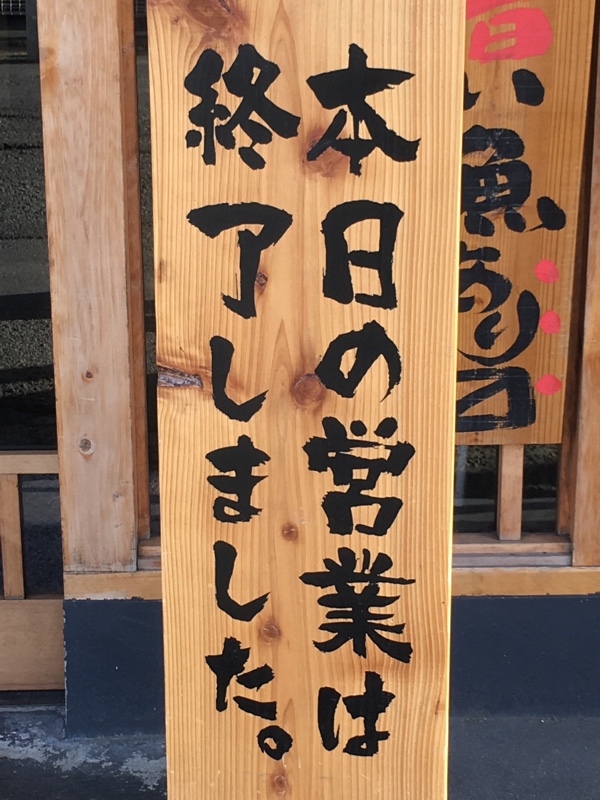 本日の営業は
終了しました。
い魚あり〼